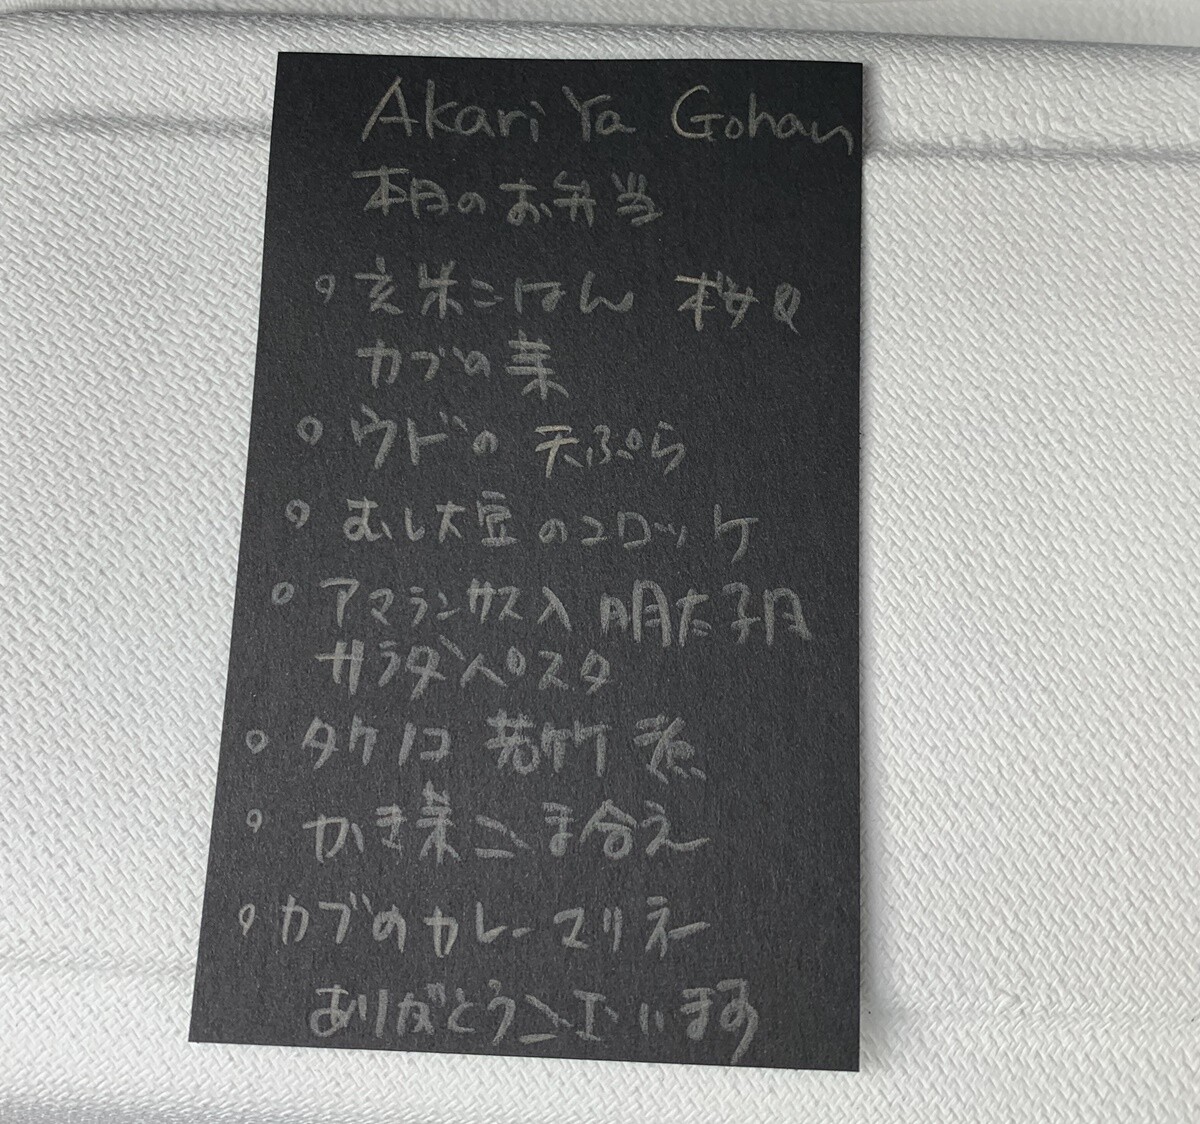 Akari Ya Gohan
本日のお弁当
○玄米ごはん 桜の
カブの葉
○ウドの 天ぷら
○むし大豆のコロッケ
○アマランサス入 明太子風
サラダパスタ
○タケノコ 若竹煮
○かき菜ごま合え
○カブのカレーマリネ
ありがとうございます